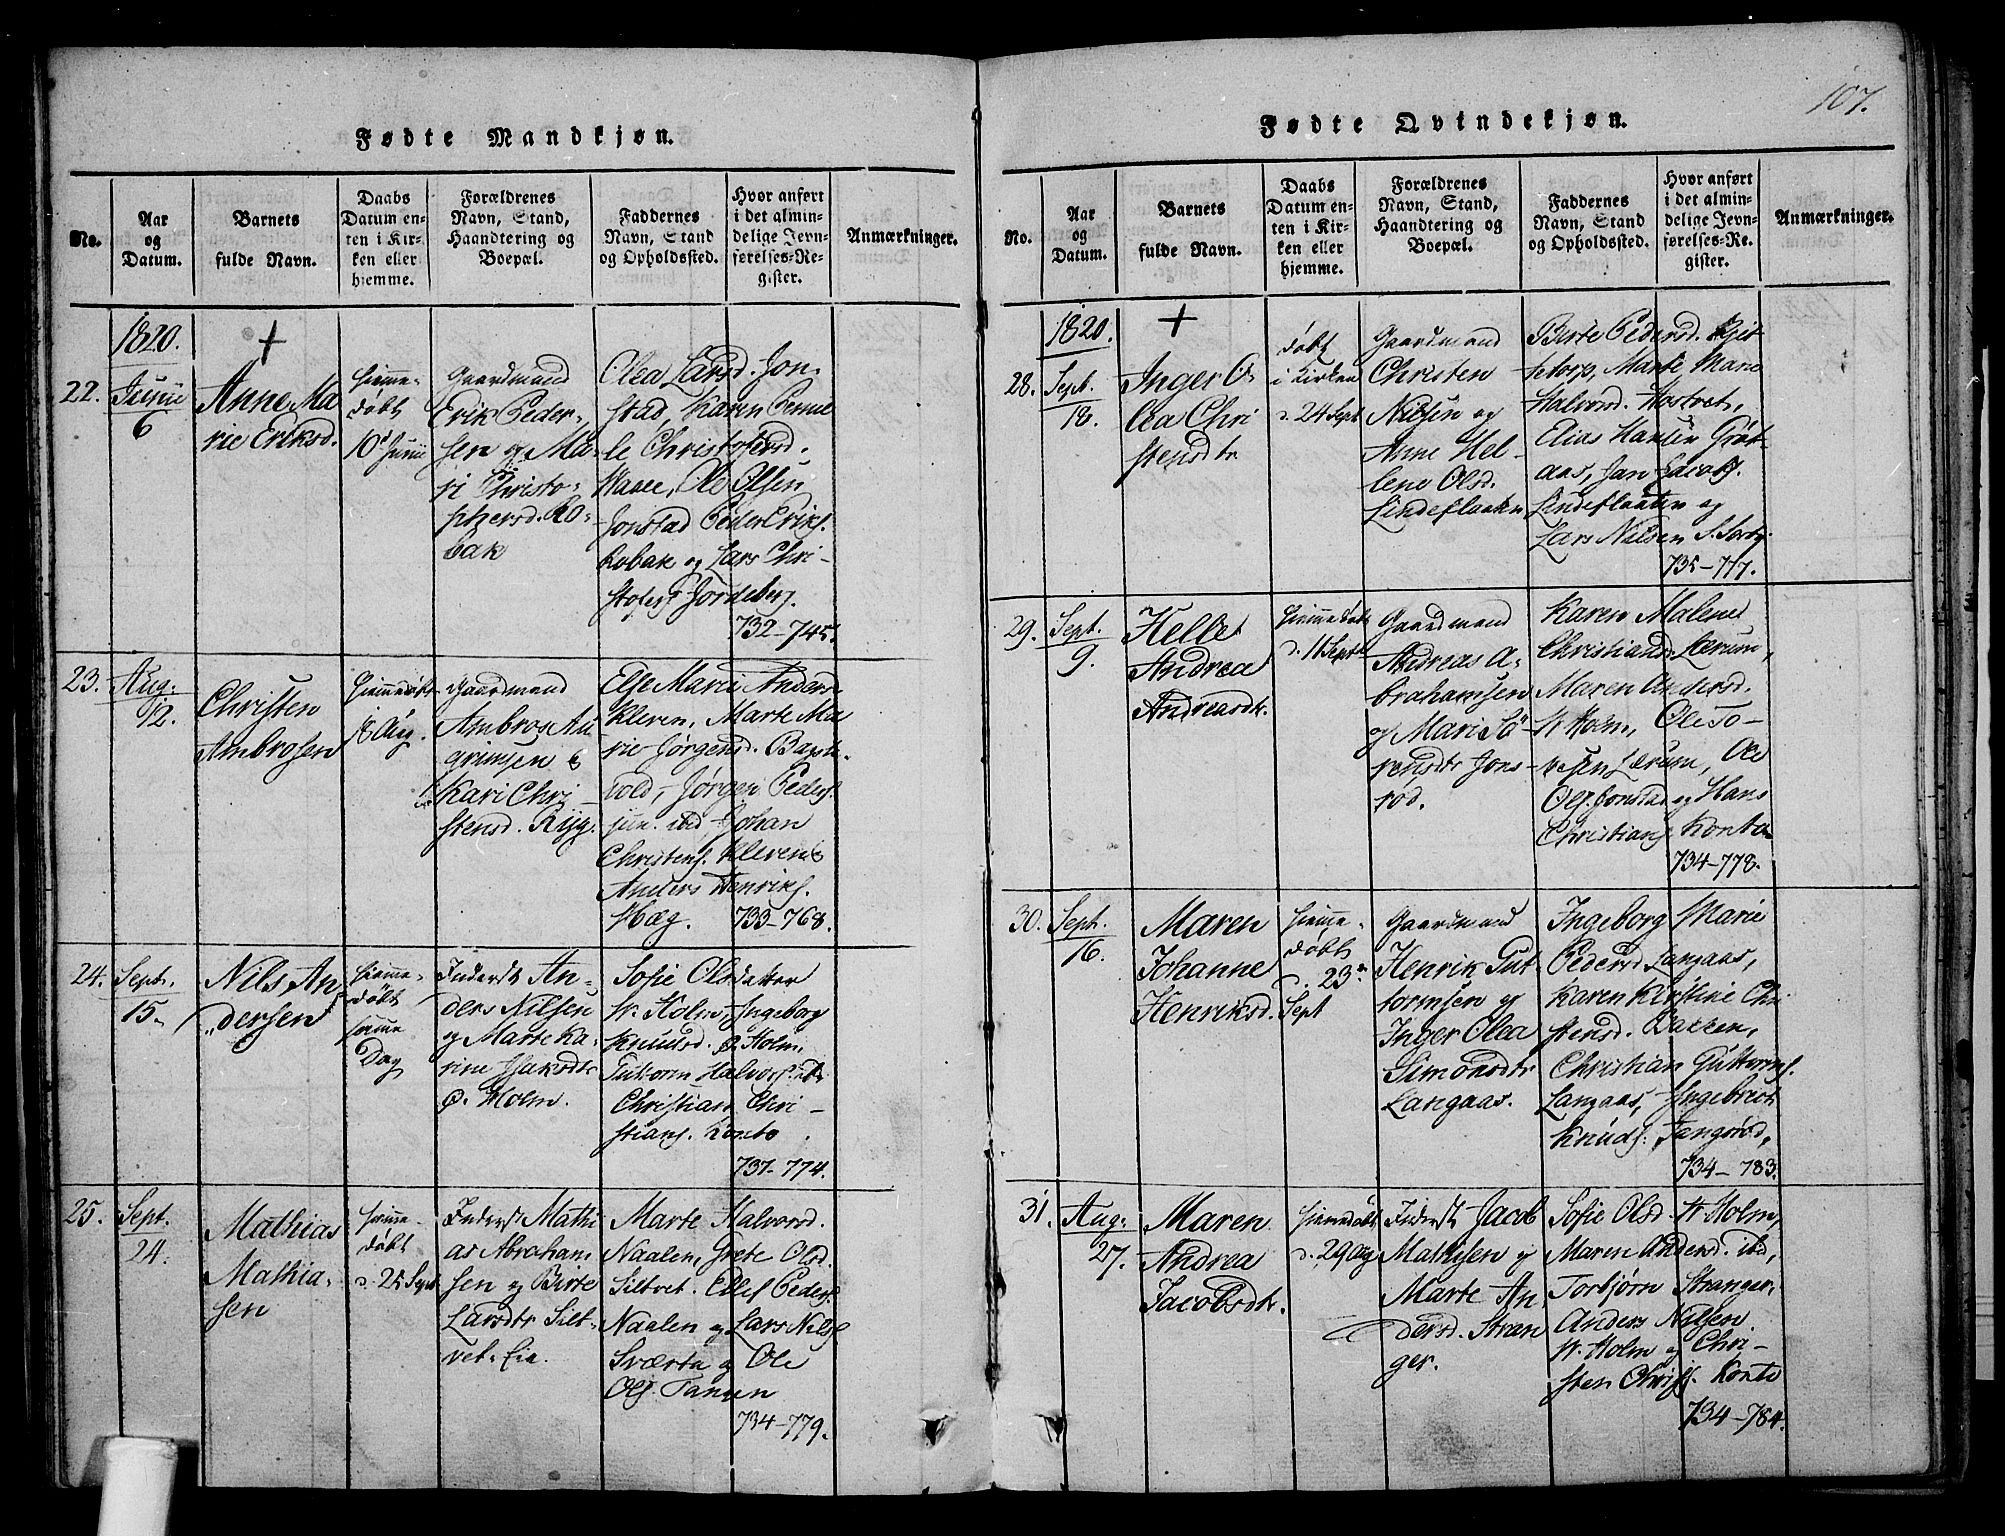 107.
Fødte Mandkjøn.
No.
Aar
og
Datum.
Barnets
fulde Navn.
Daabs
Datum en-
ten i Kir-
ken eller
hjemme.
Forældrenes
Navn, Stand,
Haandtering og
Boepæl.
Faddernes
Navn, Stand
og Opholdssted.
Hvor anført
i det almin-
delige Jevn-
førelses-Re-
gister.
Anmærkninger.
1820.
+
22.
Junii
6
Anne Ma
rie Eriksd.
hjemme-
døbt
10d Junii
Gaardmand
Erik Peder-
sen og Ma-
ri Christo-
phersd. Ro-
bak
Olea Larsd. Jon-
stad, Karen Pernil
le Christofersd.
Ole Olsen
Jonstad Peder Eriks.
Robak og Lars Chri-
stofers. Jordeberg.
732-745.
23.
Aug:
12.
Christen
Ambrosen
hjemmedøbt
18 Aug.
Gaardmand
Ambros An
grimsen &
Kari Chri-
stensd.
Else Marie Anders
Kleven, Marte Ma
rie Jørgensd.
vold, Jørgen Peders.
ibd, Johan
Christens. Kleven &
Anders Henriks.
Hæg.
733-768.
24.
Sept.
15.
Nils An
dersen
hjemme-
døbt
samme
Dag
Inderst An-
ders Nilsen
og Marte Ka-
rine Isaksdtr
Ø. Holm.
Sofie Olsdatter
V. Holm, Ingeborg
Knudsd. Ø. Holm,
Guttorm Halvors. ibd
Christian Chri-
stians. Konto
737-774.
25.
Sept.
24.
Mathias
Mathia-
sen
hjemme-
døbt
d. 25 Sept
Inderst Mathi
as Abraham
sen og Birte
Larsdtr Silt-
vet-Eie.
Marte Halvorsd.
Naalen, Grete Olsd.
Siltvet. Ellef Peders.
Naalen og Lars Nils.
Sværta og Ole
Ols. Tangen
734-779.
Fødte Qvindekjøn.
No.
Aar
og
Datum.
Barnets
fulde Navn.
Daabs
Datum en-
ten i Kir-
ken eller
hjemme.
Forældrenes
Navn, Stand,
Haandtering og
Boepæl.
Faddernes
Navn, Stand
og Opholdssted.
Hvor anført
i det almin-
delige Jevn-
førelses-Re-
gister.
Anmærkninger.
1820.
+
28.
Sept.
18.
Inger O-
lea Chri
stensdtr
døbt
i Kirken
d. 24 Sept
Gaardmand
Christen
Nilsen og
Anne Hel-
lene Olsd.
Lindeflaaten
Birte Pedersd.
Marte Marie
Halvorsd. Hostvet,
Elias Hansen Gröt
aas, Jan Jacobs.
Lindeflaaten og
Lars Nilsen S.
735-777.
29.
Sept.
9.
Helle
Andrea
Andreasdtr.
hjemmedøbt
d. 11 Sept
Gaardmand
Andreas A-
brahamsen
og Mari Sö
rensdtr Jons-
rod.
Karen Malene
Christiansd. Lærum,
Maren Andersd.
V. Holm, Ole To-
resen Lærum, Ole
Ols. Jonstad og Hans
Christians. Konto
734-778.
30.
Sept.
16.
Maren
Johanne
Henriksd.
hjemme-
døbt
d. 23n
Sept
Gaardmand
Henrik Gut
tormsen og
Inger Olea
Simonsdtr
Langaas.
Ingeborg Marie
Pedersd Langaas,
Karen Kirstine Chri
stensd. Bakken,
Christian Guttorms.
Langaas, Ingebrict
Knuds.
734-783.
31.
Aug:
27.
Maren
Andrea
Jacobsdtr.
hjemmedøbt
d. 29 Aug
Inderst Jacob
Mathisen og
Marte An-
dersd. Stran
ger.
Sofie Olsd. V. Holm,
Maren Andersd. ibd,
Torbjørn Stranger,
Anders Nilsen
V. Holm og Chri-
sten Chris. Konto
734-784.